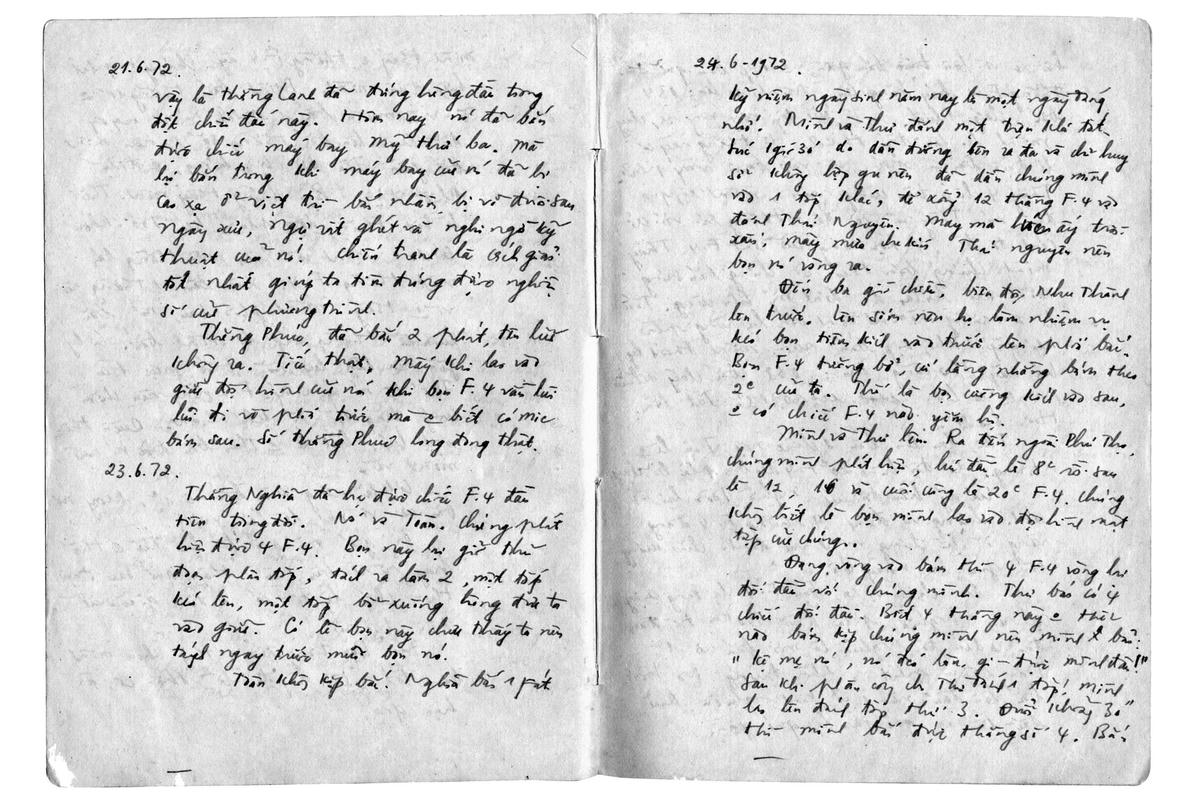 21.6.72.
Vậy là thằng Lanh đã đứng hàng đầu trong
đợt chiến đấu này. Hôm nay nó đã bắn
được chiếc máy bay Mỹ thứ ba. Mà
lại bắn trong khi máy bay của nó đã bị
cao xạ ở Việt Trì bắn nhầm, bị vỡ đuôi sau
ngày xưa, Ngụ rất ghét và nghi ngờ kỹ
thuật của nó! Chiến tranh là cách giải
tốt nhất giúp ta tìm đúng được nghiệm
số của phương trình.
Thằng Phước, đã bắn 2 phát, tên lửa
không ra. Tiếc thật, mấy khi lao vào
giữa đội hình của nó khi bọn F.4 vẫn lùi
lũi đi về phía trước mà o biết có MIC
bám sau. Số thằng Phước long đong thật.
23.6.72.
Thằng Nghĩa đã hạ được chiếc F.4 đầu
tiên trong đời. Nó và Toàn. Chúng phát
hiện được 4 F.4. Bọn này lại giở thủ
đoạn phân tốp, tách ra làm 2, một tốp
kéo lên, một tốp bổ xuống hòng đưa ta
vào giữa. Có lẽ bọn này chưa thấy ta nên
tách ngay trước mũi bọn nó.
Toàn không kịp bắn. Nghĩa bắn 1 fát
24.6-1972.
Kỷ niệm ngày sinh năm nay là một ngày đáng
nhớ. Mình và Thư đánh một trận khá tốt
lúc 1 giờ 30' do dẫn đường lên ra đa và chỉ huy
sở không hợp qu nên đã dẫn chúng mình
vào 1 tốp khác, để xổng 12 thằng F.4 vào
đánh Thái Nguyên. May mà hôm ấy trời
xấu, mây mưa che kín Thái Nguyên nên
bọn nó vòng ra.
Đến ba giờ chiều, biên đội Như Thành
lên trước. Lên sớm nên họ làm nhiệm vụ
kéo bọn tiêm kích vào trước lên phía bắc.
Bọn F.4 tưởng bở, cứ lẵng nhẵng bám theo
2c của ta. Thế là bọn cường kích vào sau,
o có chiếc F.4 nào yểm hộ.
Mình và Thư lên. Ra đến ngoài Phú Thọ,
chúng mình phát hiện, lúc đầu là 8c rồi sau
là 12, 16 và cuối cùng là 20c F.4. Chúng
không biết là bọn mình lao vào đội hình một
tốp của chúng.
Đang vòng vào bám thì 4 F.4 vòng lại
đối đầu với chúng mình. Thư báo có 4
chiếc đối đầu. Biết 4 thằng này o thể
nào bắn kịp chúng mình nên mình bảo:
"Kệ mẹ nó, nó đéo làm gì được mình đâu!"
Sau khi phân công cho Thư đánh 1 tốp, mình
lao lên đánh tốp thứ 3. Đuổi khoảng 30"
thì mình bắn được thằng số 4. Bắn